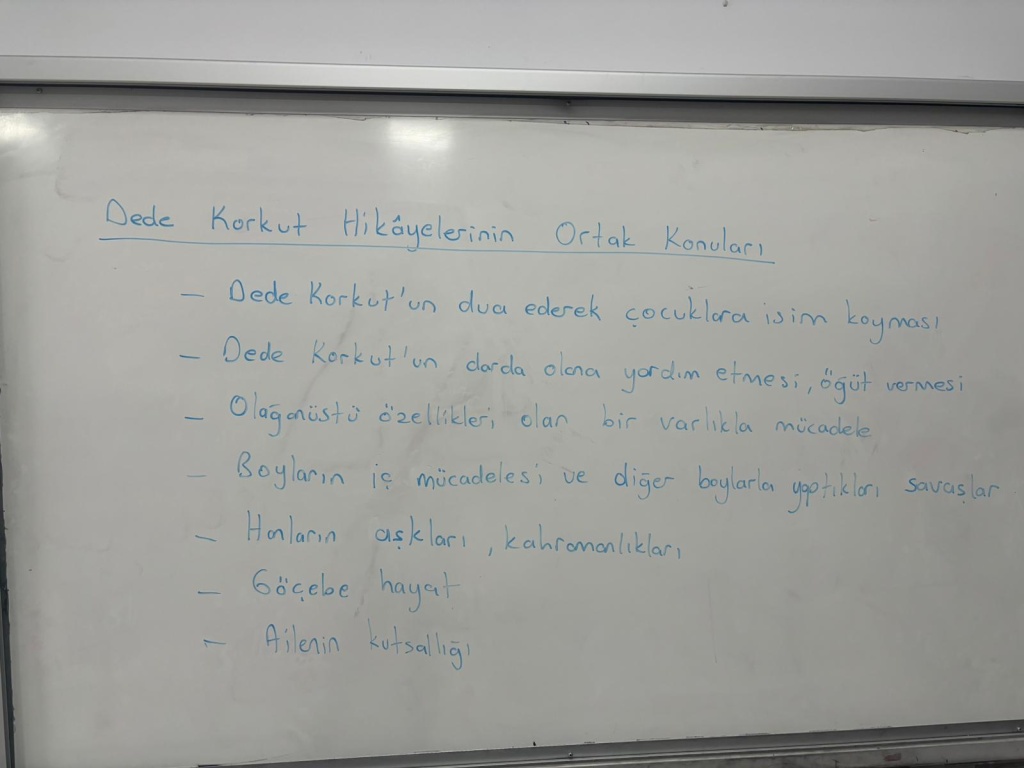 Dede Korkut Hikâyelerinin Ortak Konuları
– Dede Korkut'un dua ederek çocuklara isim koyması
– Dede Korkut'un darda olana yardım etmesi, öğüt vermesi
– Olağanüstü özellikleri olan bir varlıkla mücadele
– Boyların iç mücadelesi ve diğer boylarla yaptıkları savaşlar
– Hanların aşkları, kahramanlıkları
– Göçebe hayat
– Ailenin kutsallığı